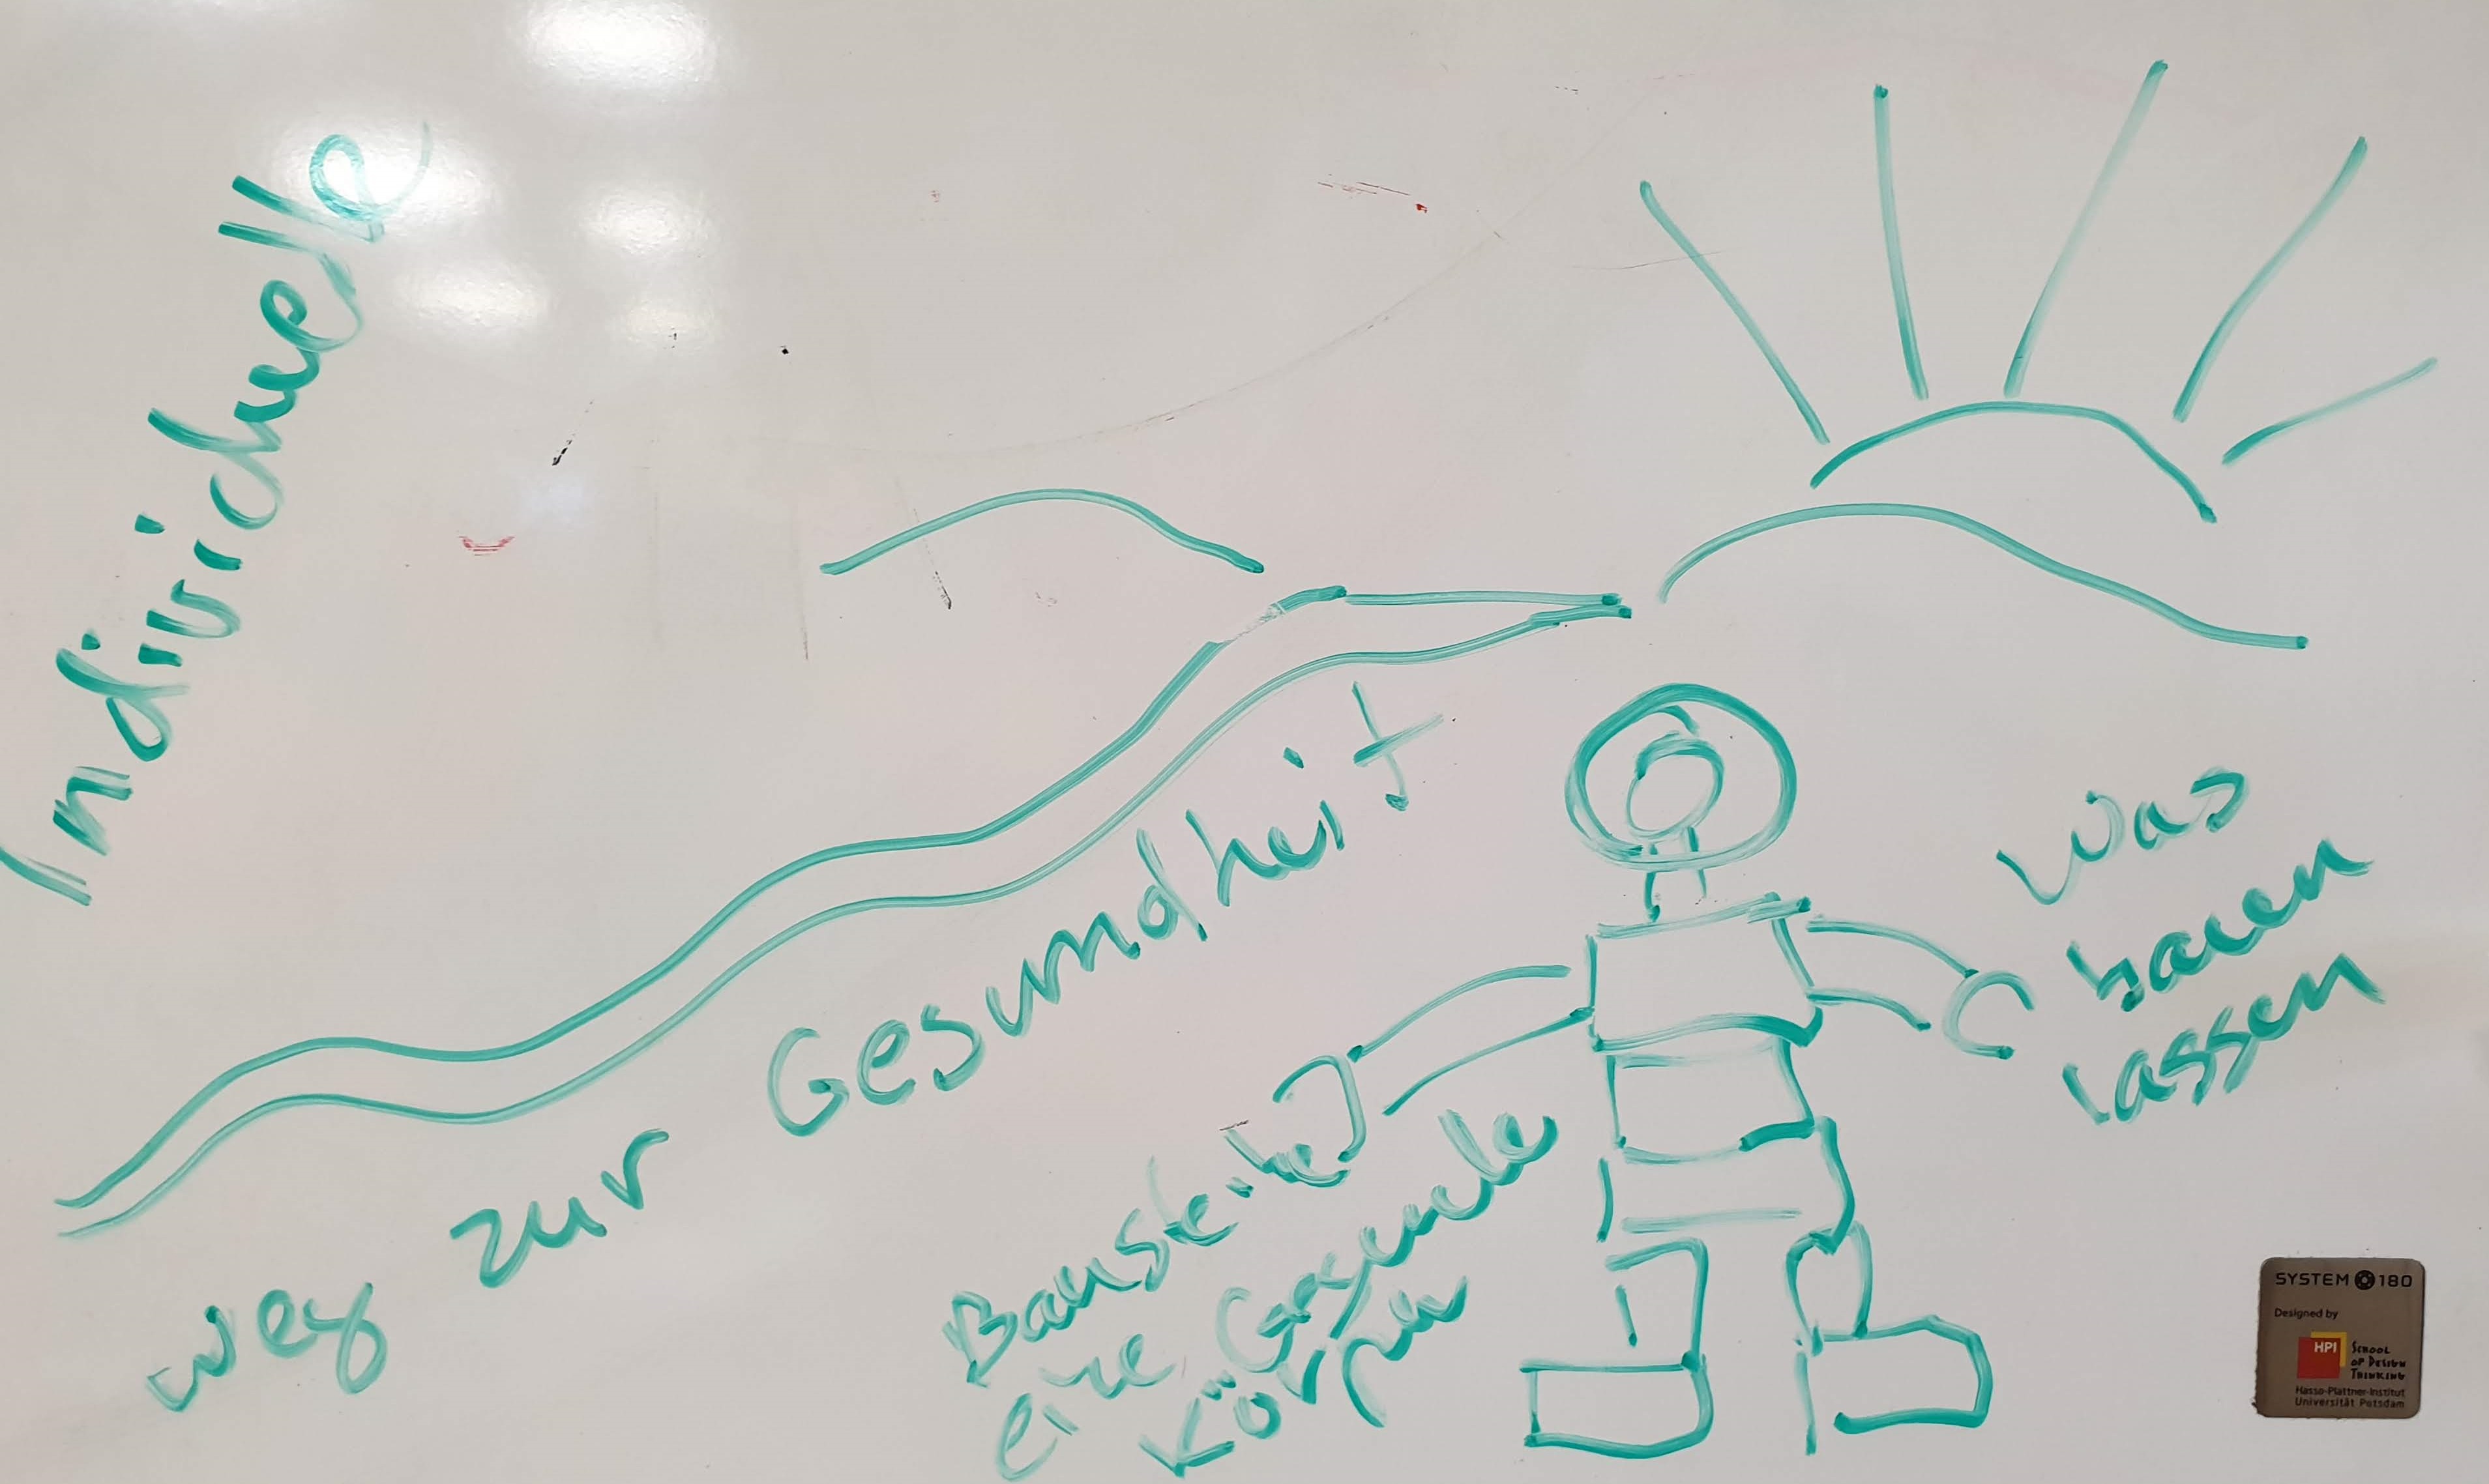 Individuelle
Weg zur Gesundheit
Bausteine
eine Gesunde
Körper
Was
bauen
lassen
SYSTEM 180
Designed by
HPI School
of Design
Thinking
Hasso-Plattner-Institut
Universität Potsdam